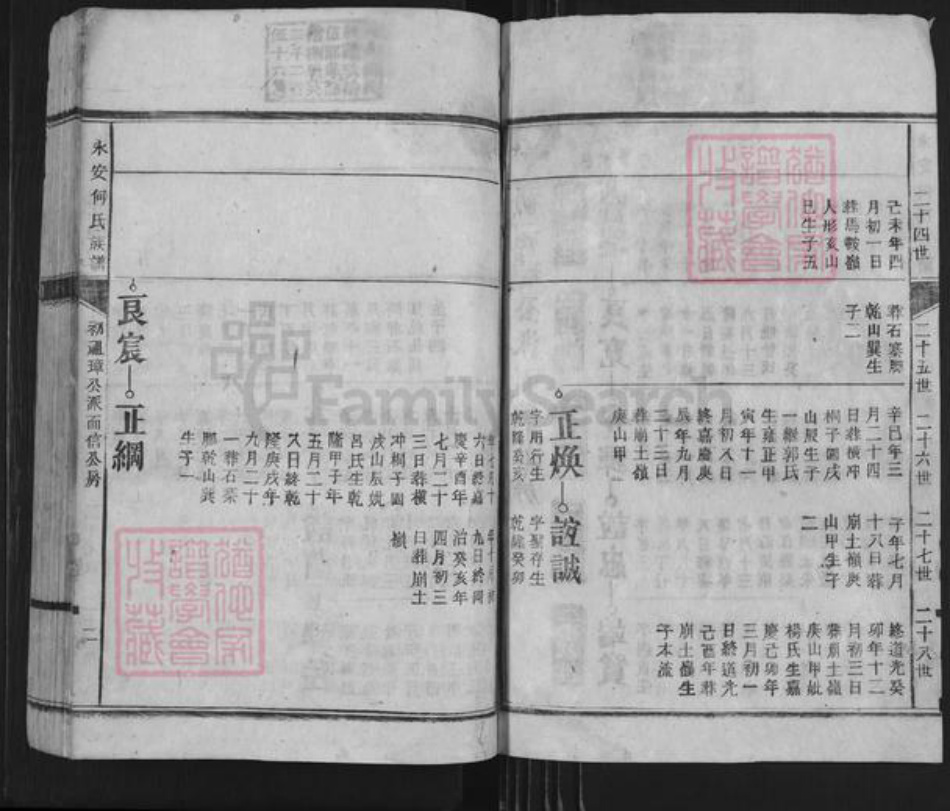 二十四世
己未年四
月初一日
葬馬鞍嶺
人形亥山
巳生子五
二十五世
葬石寨腳
乾山巽生
子二
二十六世
辛巳年三
月二十四
日葬橫冲
桐子園戌
山辰生子
一繼郭氏
生雍正甲
寅年十一
月初八日
終嘉慶庚
辰年九月
二十三日
葬崩土嶺
庚山甲
二十七世
子年七月
十八日葬
崩土嶺庚
山甲生子
二
二十八世
終道光癸
卯年十二
月初三日
葬崩土嶺
庚山甲妣
楊氏生嘉
慶己卯年
三月初一
日終道光
己酉年葬
崩土嶺生
子本流
正煥
字用行生
乾隆癸亥
誼誠
字聖存生
乾隆癸卯
年七月十
六日終嘉
慶辛酉年
七月二十
三日葬橫
冲桐子園
戌山辰妣
呂氏生乾
隆甲子年
五月二十
八日終乾
隆庚戌年
九月二十
一葬石寨
腳乾山巽
生子一
九日終同
治癸亥年
四月初三
日葬崩土
嶺
良宸
正綱
永安何氏族譜
初通璋公派面信公房
二
FamilySearch